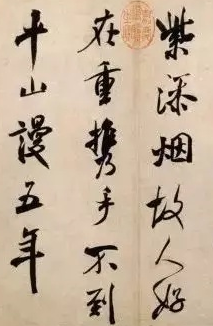 紫深烟故人好
在重携手不到
平山漫五年